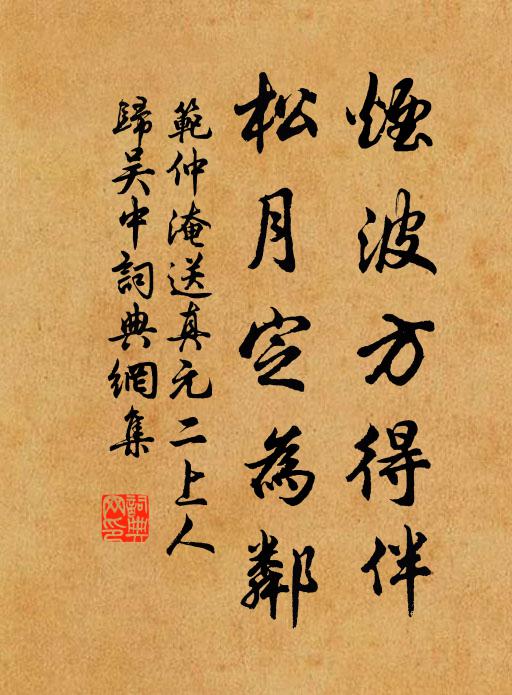 煙波方得伴
松月定為鄰
範仲淹送真元二上人
歸吴中詞典網集
詞典網印